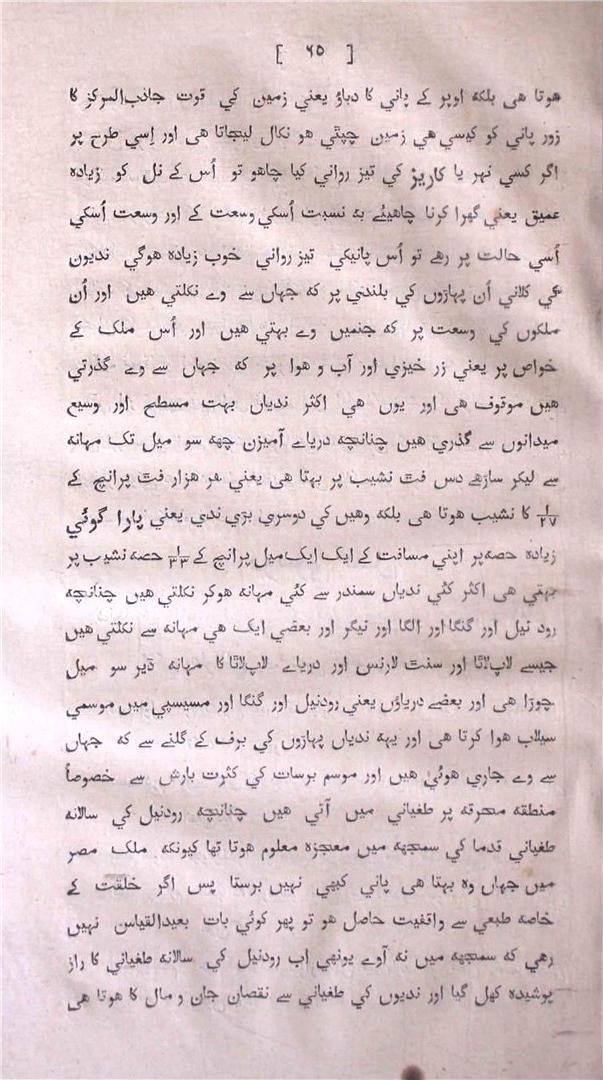 [ ٦٥ ]
هوتا هی بلکه اوپر کے پاني کا دباؤ یعني زمین کي قوت جاذب‌المرکز کا
زور پاني کو کیسي هي زمین چپٹي هو نکال لیجاتا هی اور اِسي طرح پر
اگر کسي نہر یا کاریز کي تیز رواني کیا چاهو تو اُس کے نل کو زیادہ
عمیق یعني گہرا کرنا چاهیئے به نسبت اُسکي وسعت کے اور وسعت اُسکي
اُسي حالت پر رهے تو اُس پانیکي تیز رواني خوب زیادہ هوگي ندیوں
کي کلاني اُن پہاڑوں کي بلندي پر که جہاں سے وے نکلتي هیں اور اُن
ملکوں کي وسعت پر که جنمیں وے بہتي هیں اور اُس ملک کے
خواص پر یعني زر خیزي اور آب و هوا پر که جہاں سے وے گذرتي
هیں موقوف هی اور یوں هي اکثر ندیاں بہت مسطح اور وسیع
میدانوں سے گذري هیں چنانچه دریاے آمیزن چهه سو میل تک مہانه
سے لیکر ساڑھے دس فٹ نشیب پر بہتا هی یعني هر هزار فٹ پر انچ کے
١/٢٧ کا نشیب هوتا هی بلکه وهیں کي دوسري بڑي ندي یعني پارا گوئي
زیادہ حصه پر اپني مسافت کے ایک ایک میل پر انچ کے ١/٣٣ حصه نشیب پر
بہتي هی اکثر کئي ندیاں سمندر سے کئي مہانه هوکر نکلتي هیں چنانچه
رود نیل اور گنگا اور الگا اور نیگر اور بعضي ایک هي مہانه سے نکلتي هیں
جیسے لاپ‌لاٹا اور سنٹ لارنس اور دریاے لاپ‌لاٹا کا مہانه ڈیڑ سو میل
چوڑا هی اور بعضے دریاؤں یعني رودنیل اور گنگا اور مسیسپي میں موسمي
سیلاب هوا کرتا هی اور یہه ندیاں پہاڑوں کي برف کے گلنے سے که جہاں
سے وے جاري هوئي هیں اور موسم برسات کي کثرت بارش سے خصوصاً
منطقه متحرقه پر طغیاني میں آتي هیں چنانچه رودنیل کي سالانه
طغیاني قدما کي سمجهه میں معجزہ معلوم هوتا تها کیونکه ملک مصر
میں جہاں وہ بہتا هی پاني کبهي نہیں برستا پس اگر خلقت کے
خاصه طبعي سے واقفیت حاصل هو تو پهر کوئي بات بعیدالقیاس نہیں
رهي که سمجهه میں نه آوے یونهي اب رودنیل کي سالانه طغیاني کا راز
پوشیدہ کهل گیا اور ندیوں کي طغیاني سے نقصان جان و مال کا هوتا هی